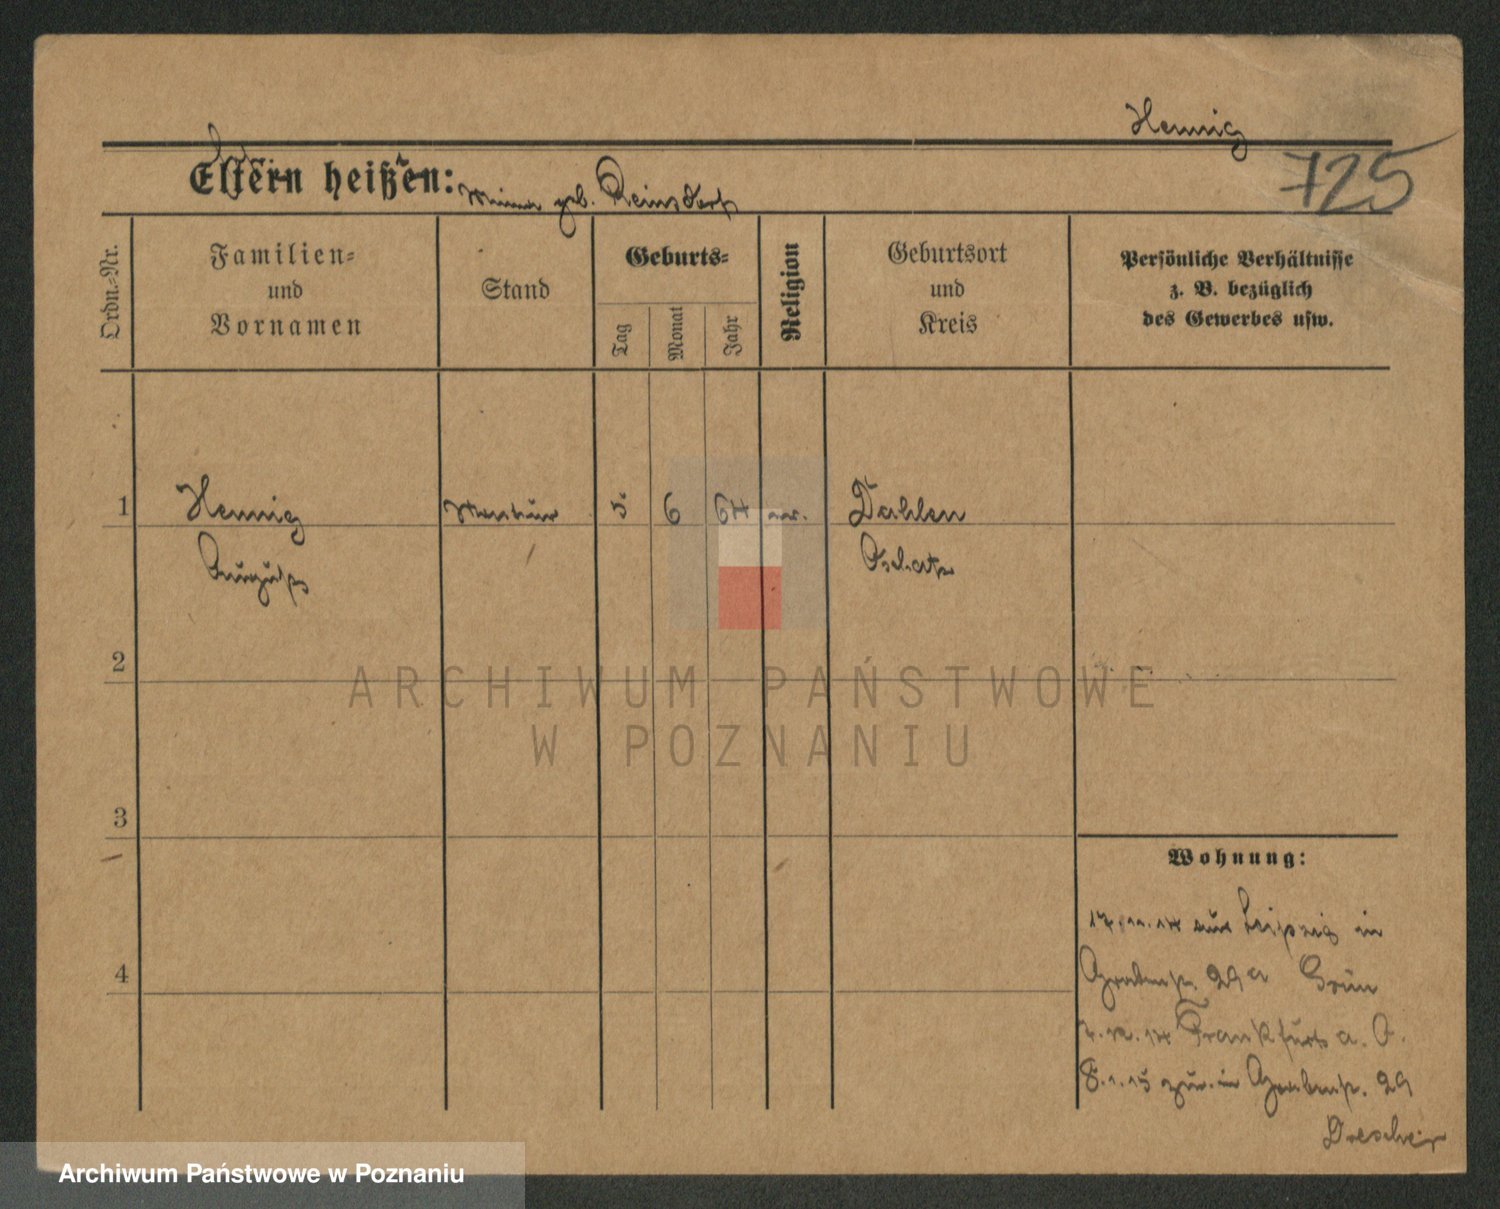 Hennig
725
Eltern heißen:
Minna geb. Reinsdorf
Ordn.-Nr.
Familien-
und
Vornamen
Stand
Geburts-
Tag
Monat
Jahr
Religion
Geburtsort
und
Kreis
Persönliche Verhältnisse
z. B. bezüglich
des Gewerbes usw.
1
Hennig
5
6
64
Dahlen
August
Oschatz
2
3
4
Wohnung:
17.11.14 aus Leipzig in
Grabenstr. 29a Grün
Frankfurt a. O.
8.1.15 zur. in Grabenstr. 29
Drescher
ARCHIWUM PAŃSTWOWE
W POZNANIU
Archiwum Państwowe w Poznaniu